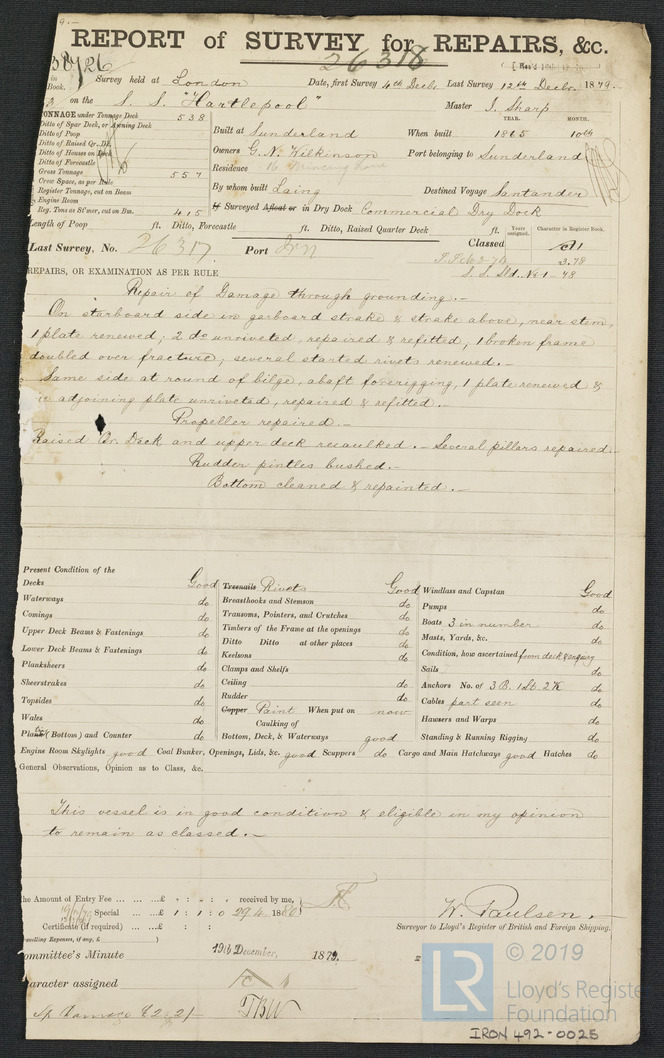 REPORT of SURVEY for REPAIRS, &c.
26318
Survey held at London Date, first Survey 4th Decbr Last Survey 12th Decbr. 1879.
on the S. S. "Hartlepool" Master J. Sharp
TONNAGE under Tonnage Deck 538
Ditto of Spar Deck, or Awning Deck
Ditto of Poop
Ditto of Raised Qr. Dk.
Ditto of Houses on Deck
Ditto of Forecastle
Gross Tonnage 557
Crew Space, as per Rule
Register Tonnage, cut on Beam
Engine Room
Reg. Tons as St'mer, cut on Bm. 415
YEAR. MONTH.
Built at Sunderland When built 1865 10th
Owners G. N. Wilkinson Port belonging to Sunderland
Residence
By whom built Laing Destined Voyage Santander
If Surveyed Afloat or in Dry Dock Commercial Dry Dock
Length of Poop ft. Ditto, Forecastle ft. Ditto, Raised Quarter Deck ft.
Years assigned. Character in Register Book.
Last Survey, No. 26317 Port Irn Classed
3.78
S. S. Sld. No 1 - 78
REPAIRS, OR EXAMINATION AS PER RULE
Repair of Damage through grounding.-
On starboard side in garboard strake & strake above, near stem,
1 plate renewed; 2 do unriveted, repaired & refitted, 1 broken frame
doubled over fracture, several started rivets renewed.-
Same side at round of bilge, abaft forerigging, 1 plate renewed &
adjoining plate unriveted, repaired & refitted.-
Propeller repaired.-
Raised Qr. Deck and upper deck recaulked.- Several pillars repaired.
Rudder pintles bushed.-
Bottom cleaned & repainted.-
Present Condition of the
Decks Good
Waterways do
Comings do
Upper Deck Beams & Fastenings do
Lower Deck Beams & Fastenings do
Planksheers do
Sheerstrakes do
Topsides do
Wales do
Plank (Bottom) and Counter do
Treenails Rivets Good
Breasthooks and Stemson do
Transoms, Pointers, and Crutches do
Timbers of the Frame at the openings do
Ditto Ditto at other places do
Keelsons do
Clamps and Shelfs
Ceiling do
Rudder do
Copper Paint When put on now
Caulking of
Bottom, Deck, & Waterways good
Windlass and Capstan Good
Pumps do
Boats 3 in number do
Masts, Yards, &c. do
Condition, how ascertained from deck & enquiry
Sails do
Anchors No. of 3 B. 1 St. 2 K do
Cables part seen do
Hawsers and Warps do
Standing & Running Rigging do
Engine Room Skylights good Coal Bunker, Openings, Lids, &c. good Scuppers do Cargo and Main Hatchways good Hatches do
General Observations, Opinion as to Class, &c.
This vessel is in good condition & eligible in my opinion
to remain as classed.-
The Amount of Entry Fee ... £ : : received by me,
Special ... £ 1 : 1 : 0 29.4.1880
Certificate (if required) ... £ : :
(Travelling Expenses, if any, £ )
W. Paulsen.
Surveyor to Lloyd's Register of British and Foreign Shipping.
Committee's Minute 19th December, 1879.
Character assigned
© 2019
LR
Lloyd's Register
Foundation
IRON 492-0025